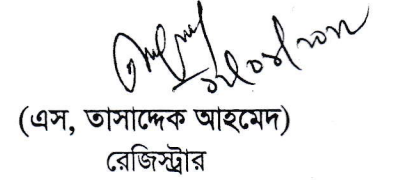 (এস, তাসাদ্দেক আহমেদ)
রেজিস্ট্রার